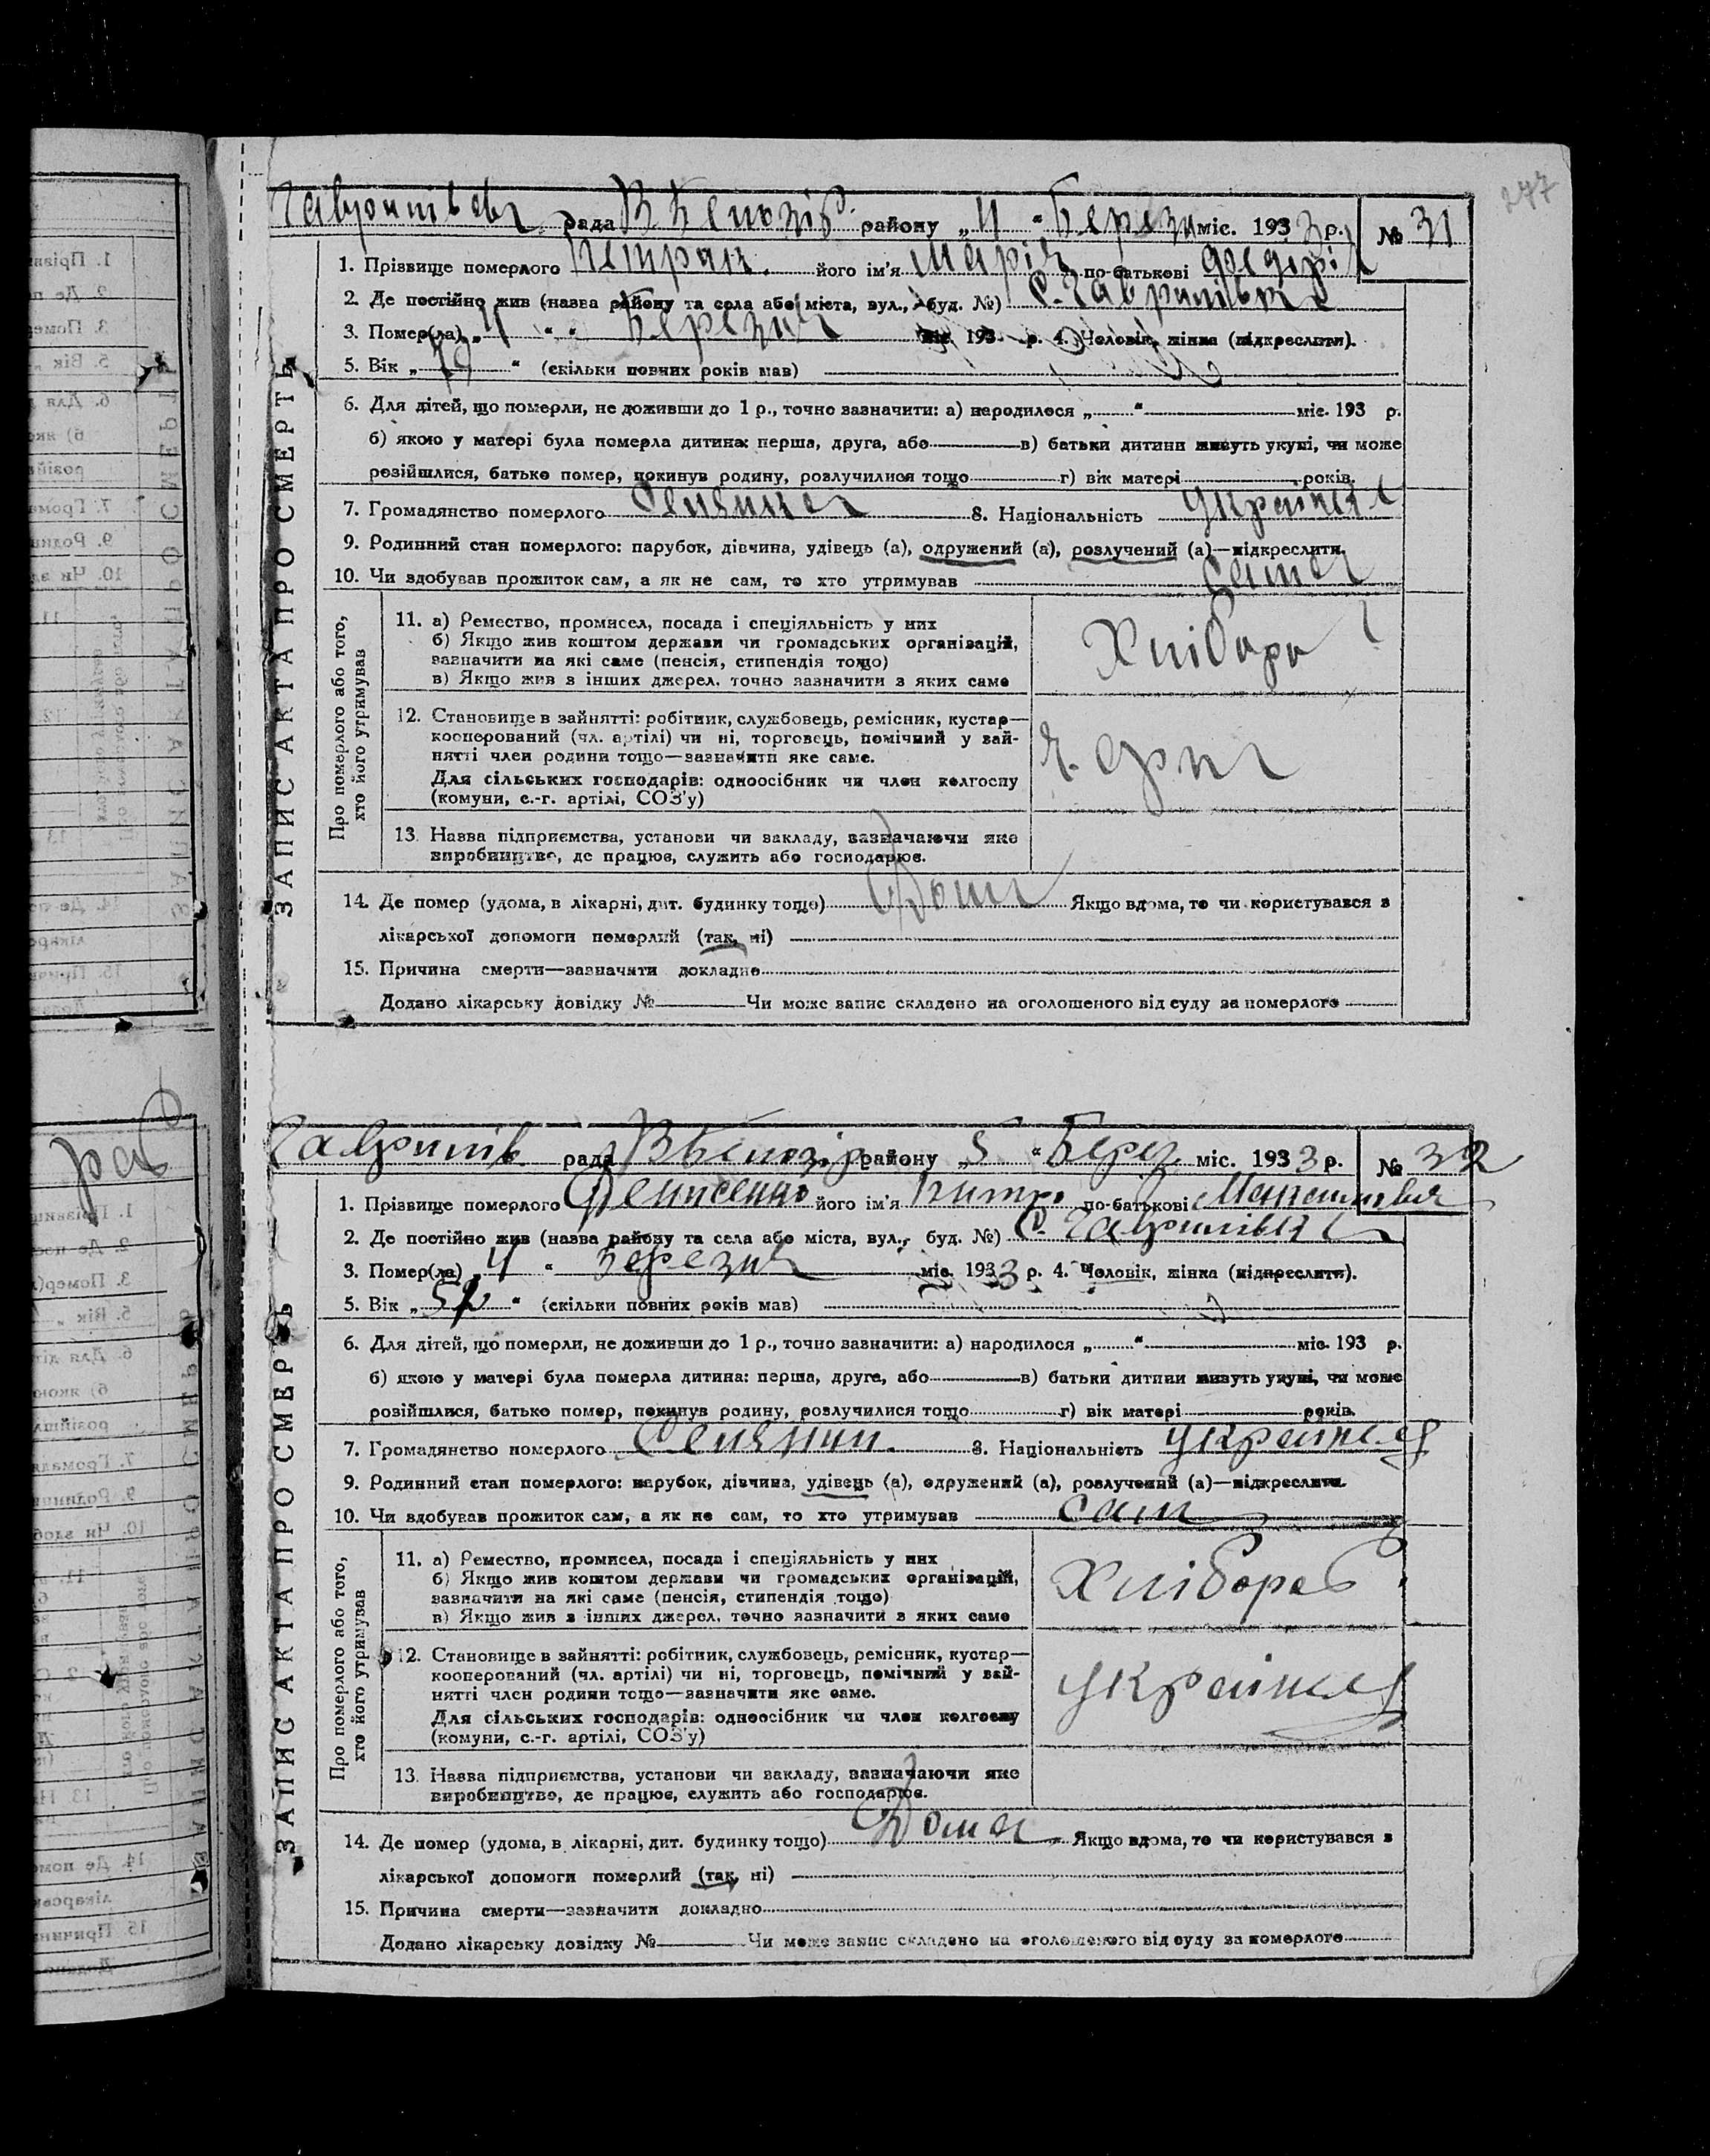 277
рада В Белозір. району „4“ Березн міс. 1933 р. № 31
ЗАПИС АКТА ПРО СМЕРТЬ
1. Прізвище померлого Петрак його ім'я Марія по-батькові
2. Де постійно жив (назва району та села або міста, вул., буд. №) с. Гаврилівка
3. Помер(ла) „4“ Березня міс. 193 р. 4. Чоловік, жінка (підкреслити).
5. Вік „ “ (скільки повних років мав)
6. Для дітей, що померли, не доживши до 1 р., точно зазначити: а) народилося „ “ міс. 193 р.
б) якою у матері була померла дитина: перша, друга, або в) батьки дитини живуть укупі, чи може
розійшлися, батько помер, покинув родину, розлучилися тощо г) вік матері років.
7. Громадянство померлого Селянка 8. Національність Українка
9. Родинний стан померлого: парубок, дівчина, удівець (а), одружений (а), розлучений (а)—підкреслити.
10. Чи здобував прожиток сам, а як не сам, то хто утримував сама
Про померлого або того,
хто його утримував
11. а) Ремество, промисел, посада і спеціяльність у них
б) Якщо жив коштом держави чи громадських організацій,
зазначити на які саме (пенсія, стипендія тощо)
в) Якщо жив з інших джерел, точно зазначити з яких саме
Хлібороб
12. Становище в зайнятті: робітник, службовець, ремісник, кустар—
кооперований (чл. артілі) чи ні, торговець, помічний у зай-
нятті член родини тощо—зазначити яке саме.
Для сільських господарів: одноосібник чи член колгоспу
(комуни, с.-г. артілі, СОЗ'у)
13. Назва підприємства, установи чи закладу, зазначаючи яке
виробництво, де працює, служить або господарює.
14. Де помер (удома, в лікарні, дит. будинку тощо) Дома Якщо вдома, то чи користувався з
лікарської допомоги померлий (так, ні)
15. Причина смерти—зазначити докладно
Додано лікарську довідку № Чи може запис складено на оголошеного від суду за померлого
Гаврилів рада В Белозір району „5“ Берез міс. 1933 р. № 32
ЗАПИС АКТА ПРО СМЕРТЬ
1. Прізвище померлого Денисенко його ім'я по-батькові
2. Де постійно жив (назва району та села або міста, вул., буд. №) с. Гаврилівка
3. Помер(ла) „4“ Березня міс. 1933 р. 4. Чоловік, жінка (підкреслити).
5. Вік „ “ (скільки повних років мав)
6. Для дітей, що померли, не доживши до 1 р., точно зазначити: а) народилося „ “ міс. 193 р.
б) якою у матері була померла дитина: перша, друга, або в) батьки дитини живуть укупі, чи може
розійшлися, батько помер, покинув родину, розлучилися тощо г) вік матері років.
7. Громадянство померлого Селянин. 8. Національність Українец
9. Родинний стан померлого: парубок, дівчина, удівець (а), одружений (а), розлучений (а)—підкреслити.
10. Чи здобував прожиток сам, а як не сам, то хто утримував сам
Про померлого або того,
хто його утримував
11. а) Ремество, промисел, посада і спеціяльність у них
б) Якщо жив коштом держави чи громадських організацій,
зазначити на які саме (пенсія, стипендія тощо)
в) Якщо жив з інших джерел, точно зазначити з яких саме
Хлібороб
12. Становище в зайнятті: робітник, службовець, ремісник, кустар—
кооперований (чл. артілі) чи ні, торговець, помічний у зай-
нятті член родини тощо—зазначити яке саме.
Для сільських господарів: одноосібник чи член колгоспу
(комуни, с.-г. артілі, СОЗ'у)
Українец
13. Назва підприємства, установи чи закладу, зазначаючи яке
виробництво, де працює, служить або господарює.
14. Де помер (удома, в лікарні, дит. будинку тощо) Дома Якщо вдома, то чи користувався з
лікарської допомоги померлий (так, ні)
15. Причина смерти—зазначити докладно
Додано лікарську довідку № Чи може запис складено на оголошеного від суду за померлого